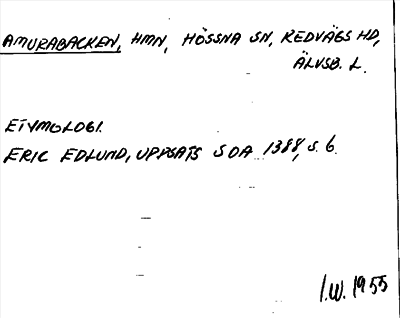 AMURABACKEN, HMN, HÖSSNA SN, REDVÄGS HD,
ÄLVSB. L.
ETYMOLOGI.
ERIC EDLUND, UPPSATS SOA 1388, S. 6.
I.W. 1955